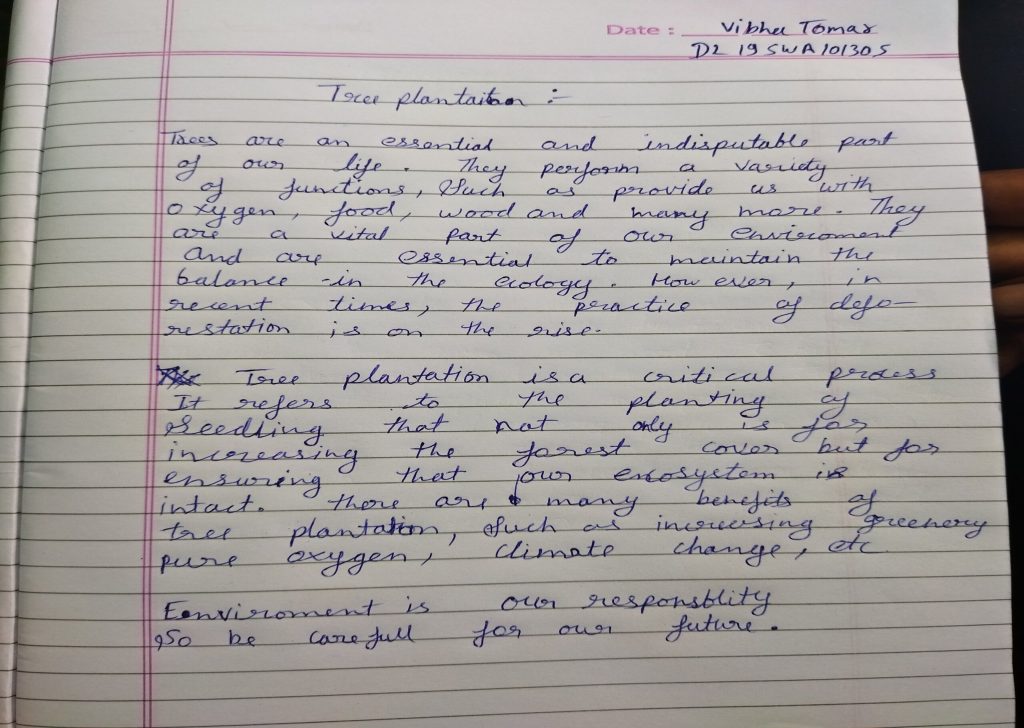 Date : Vibhu Tomar
DL 19 SWA 101305
Tree plantaiton :-
Trees are an essential and indisputable part
of our life. They perform a variety
of functions, Such as provide us with
oxygen, food, wood and many more. They
are a vital part of our enviroment
And are essential to maintain the
balance -in the ecology. How ever, in
recent times, the practice of defo-
restation is on the rise.
Tree plantation is a critical process
It refers to the planting of
Seedling that not only is for
increasing the forest cover but for
ensuring that our encosystem is
intact. there are many benefits of
tree plantation, Such as increesing greenery
pure oxygen, climate change, etc
Eenviroment is our responsblity
So be carefull for our future.